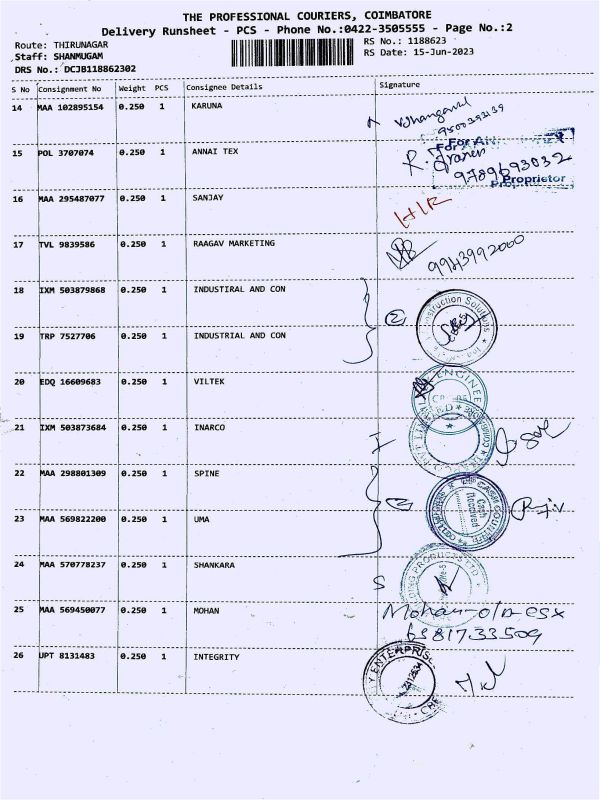 THE PROFESSIONAL COURIERS, COIMBATORE
Delivery Runsheet - PCS - Phone No.:0422-3505555 - Page No.:2
Route: THIRUNAGAR
RS No.: 1188623
Staff: SHANMUGAM
RS Date: 15-Jun-2023
DRS No.: DCJB118862302
S No Consignment No Weight PCS Consignee Details Signature
14 MAA 102895154 0.250 1 KARUNA
15 POL 3707074 0.250 1 ANNAI TEX
For AN
9789693032
Proprietor
16 MAA 295487077 0.250 1 SANJAY
17 TVL 9839586 0.250 1 RAAGAV MARKETING
9943992000
18 IXM 503879868 0.250 1 INDUSTIRAL AND CON
19 TRP 7527706 0.250 1 INDUSTRIAL AND CON
Construction Solutions
20 EDQ 16609683 0.250 1 VILTEK
ENGINEE
21 IXM 503873684 0.250 1 INARCO
LIMITED
22 MAA 298801309 0.250 1 SPINE
CASH COUNTER
Cash
Received
Rajiv
23 MAA 569822200 0.250 1 UMA
24 MAA 570778237 0.250 1 SHANKARA
S
PRODUCTS LTD
25 MAA 569450077 0.250 1 MOHAN
Mohan
6381733509
26 UPT 8131483 0.250 1 INTEGRITY
ENTERPRISE